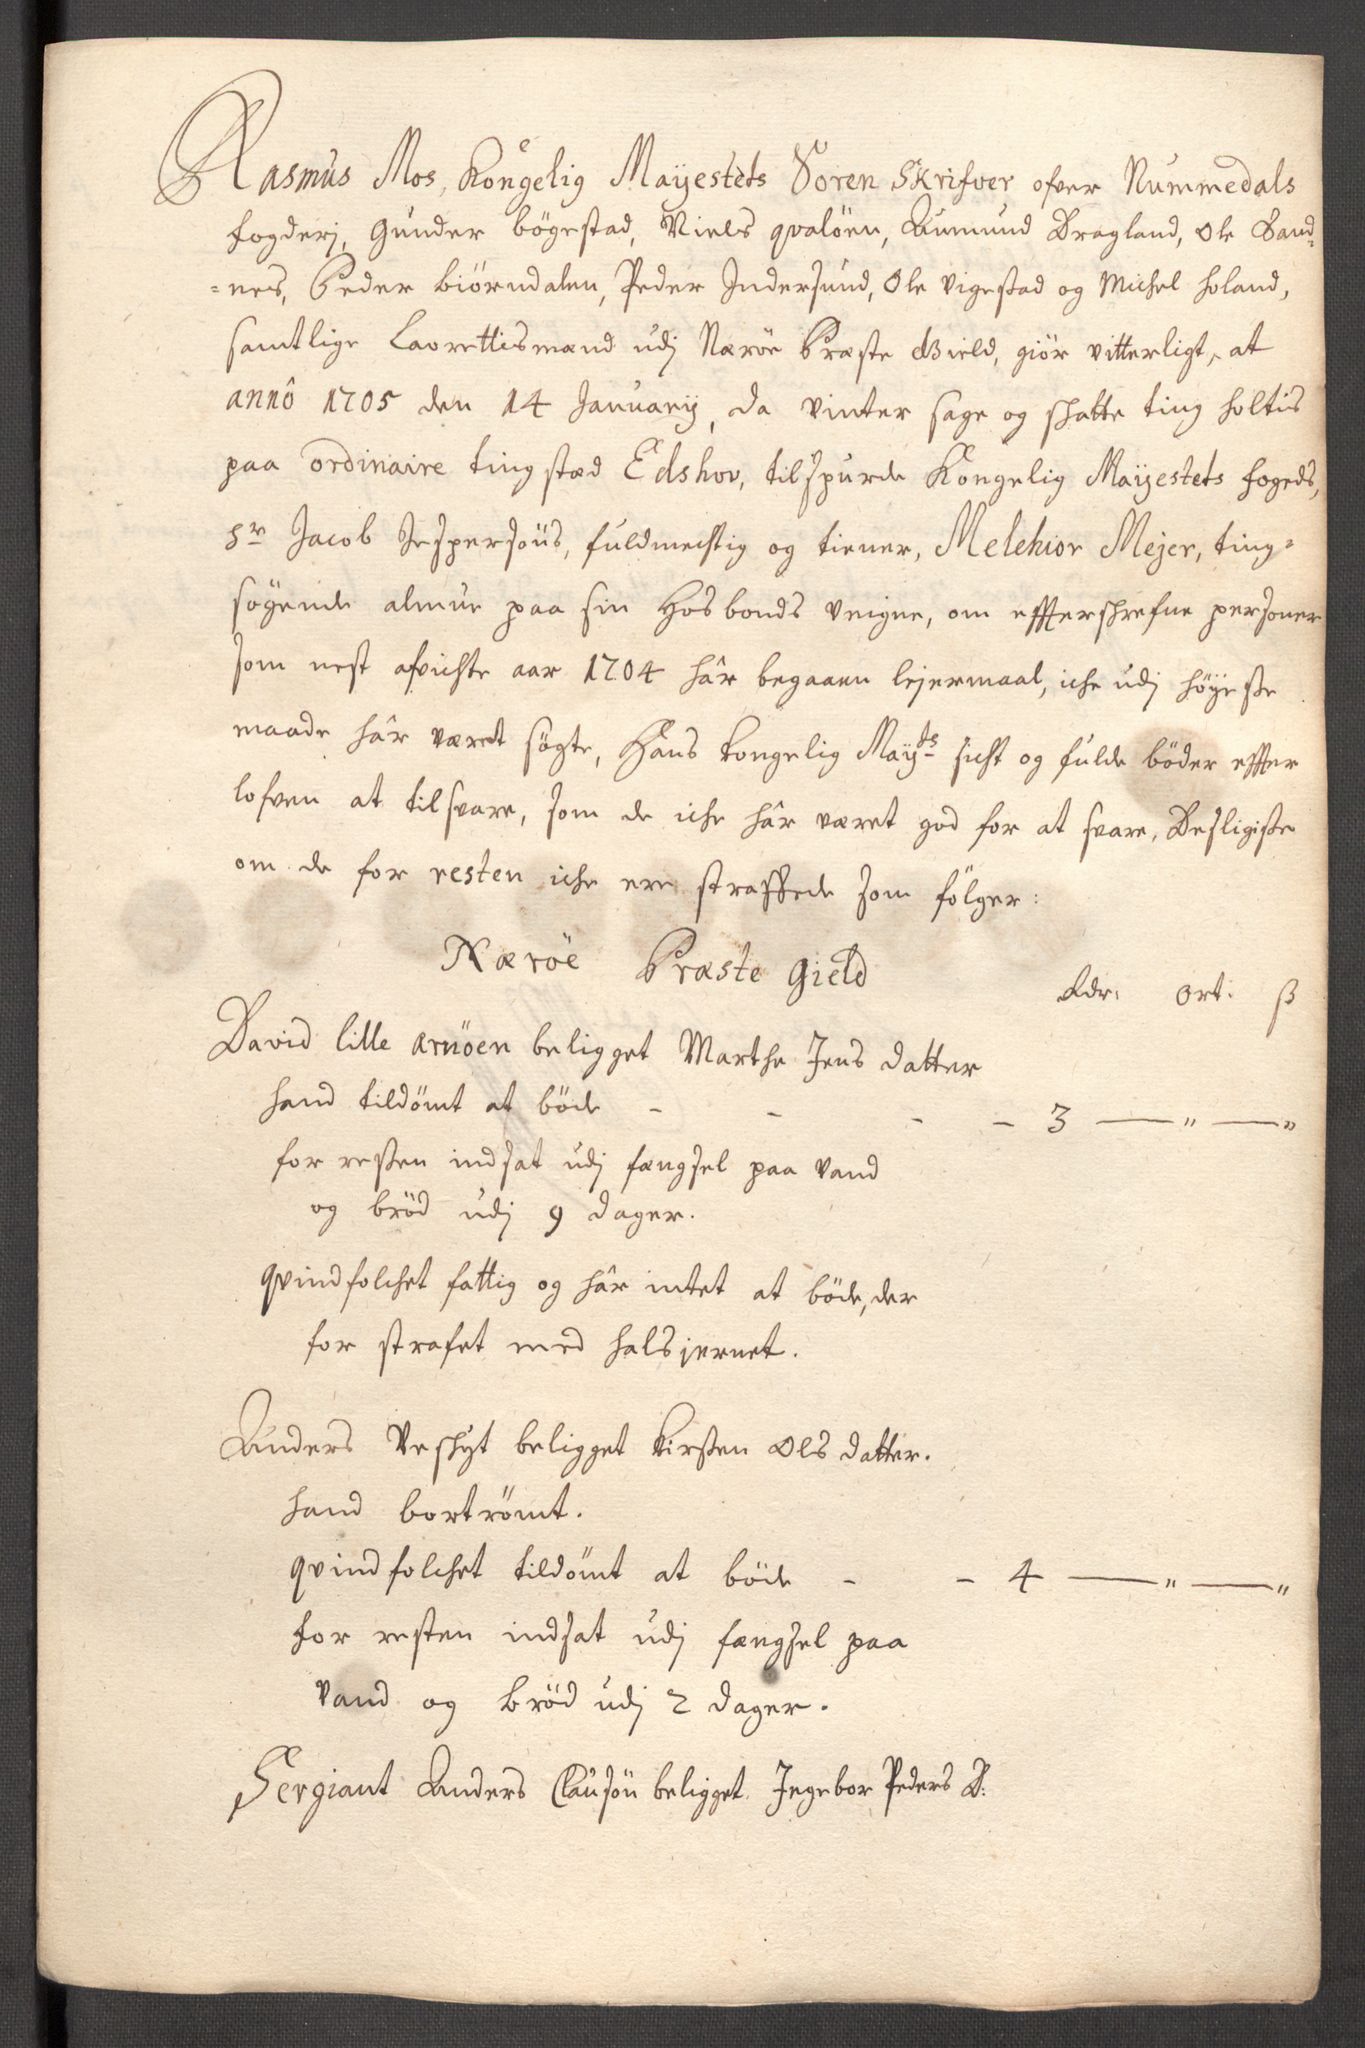 Rasmus Mos, Kongelig Mayestets Soren Skrifver ofver Nummedals
fogderj, Gunder bögestad, Niels qvalöen, Aumund Dragland, Ole Sand=
=nes, Peder biörndalen, Peder Indersund, Ole vigestad og Michel holand,
samtlige Laurettismænd udj Næröe Præste Gield, giör vitterligt, at
annô 1705 den 14 January, da vinter sage og skatte ting holtis
paa ordinaire tingstæd Edshov, tilspurde Kongelig Mayestets fogeds,
Sr Jacob Jespersöns, fuldmechtig og tiener, Melchior Mejer, ting=
søgende almue paa sin Hosbonds veigne, om effterschrefne personer
som nest afvichte aar 1704 hâr begaaen lejermaal, iche udj höyeste
maade hâr været søgte, Hans kongelig Mayts sicht og fulde böder effter
lofven at tilsvare, som de iche hâr været god for at svare, Desligiste
om de for resten iche ere straffede som fölger:
Næröe Præste Gield
Rdr: Ort: ß
David lille arnöen beligget Marthe Jens datter
hand tildömt at böde - - - - 3 — " — "
for resten indsat udj fængsel paa vand
og bröd udj 9 dager.
qvindfolchet fattig og hâr intet at böde, der
for strafet med halsjernet.
Anders Veskyt beligget Kirsten Ols datter.
hand bortrömt.
qvindfolchet tildömt at böde - - 4 — " — "
for resten indsat udj fængsel paa
vand og bröd udj 2 dager.
Sergiant Anders Clausön beligget Ingebor Peders D: